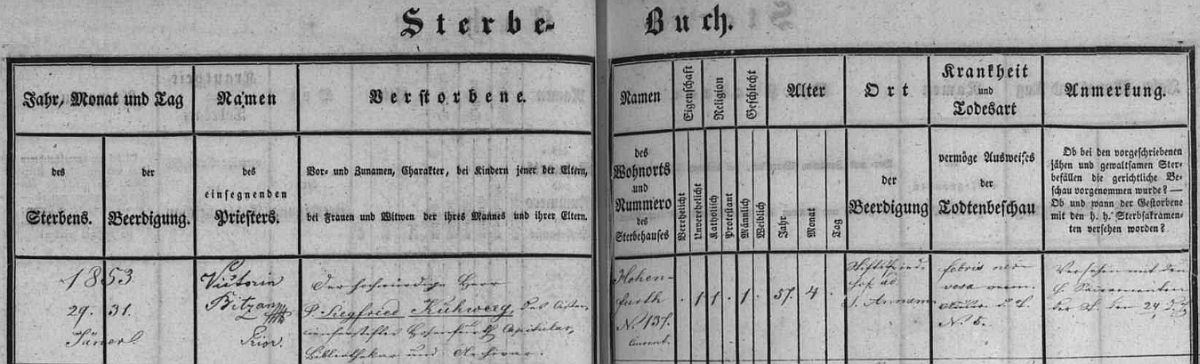 Sterbe-Buch.
Jahr, Monat und Tag
des Sterbens.
der Beerdigung.
Namen
des einsegnenden Priesters.
Verstorbene.
Vor- und Zunamen, Charakter, bei Kindern jener der Eltern,
bei Frauen und Witwen der ihres Mannes und ihrer Eltern.
Namen
des
Wohnorts
und
Nummero
des
Sterbehauses
Eigenschaft
Verehelicht
Unverehelicht
Religion
Katholisch
Protestant
Geschlecht
Männlich
Weiblich
Alter
Jahr
Monat
Tag
Ort
der
Beerdigung
Krankheit
und
Todesart
vermöge Ausweises
der
Todtenbeschau
Anmerkung.
Ob bei den vorgeschriebenen
jähen und gewaltsamen Ster-
befällen die gerichtliche Be-
schau vorgenommen wurde? —
Ob und wann der Gestorbene
mit den h. h. Sterbsakramen-
ten versehen worden?
1853
29. 31.
Jänner
Victorin
Bitzan
Prior.
Der hochwürdige Herr
P. Siegfried Kühweg, des Cister-
Hohenfurth Capitular,
Bibliothekar und Archivar.
Hohen-
furth
N. 137.
1 1 1
57. 4
Stiftsfried-
hof ad
S. Annam
febris ner-
vosa
N. 5.
Versehen mit den
h. Sacramenten